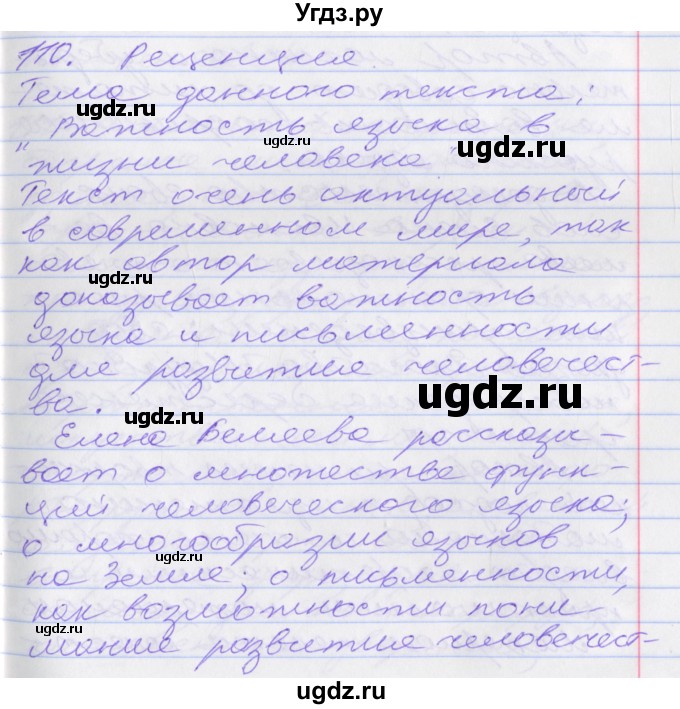 Угдз.ру
110. Рецензия.
Тема данного текста:
ugdz.ru
"Важность языка в
ugdz.ru
жизни человека"
Текст очень актуальный
в современном мире, так
как автор материала
ugdz.ru
доказывает важность
языка и письменности
для развития человечест-
ugdz.ru
ва.
ugdz.ru
Елена Беляева рассказы-
вает о множестве функ-
ций человеческого языка;
ugdz.ru
о многообразии языков
ugdz.ru
на Земле; о письменности,
как возможности пони-
ugdz.ru
ugdz.ru
мания развития человечест-
ugdz.ru